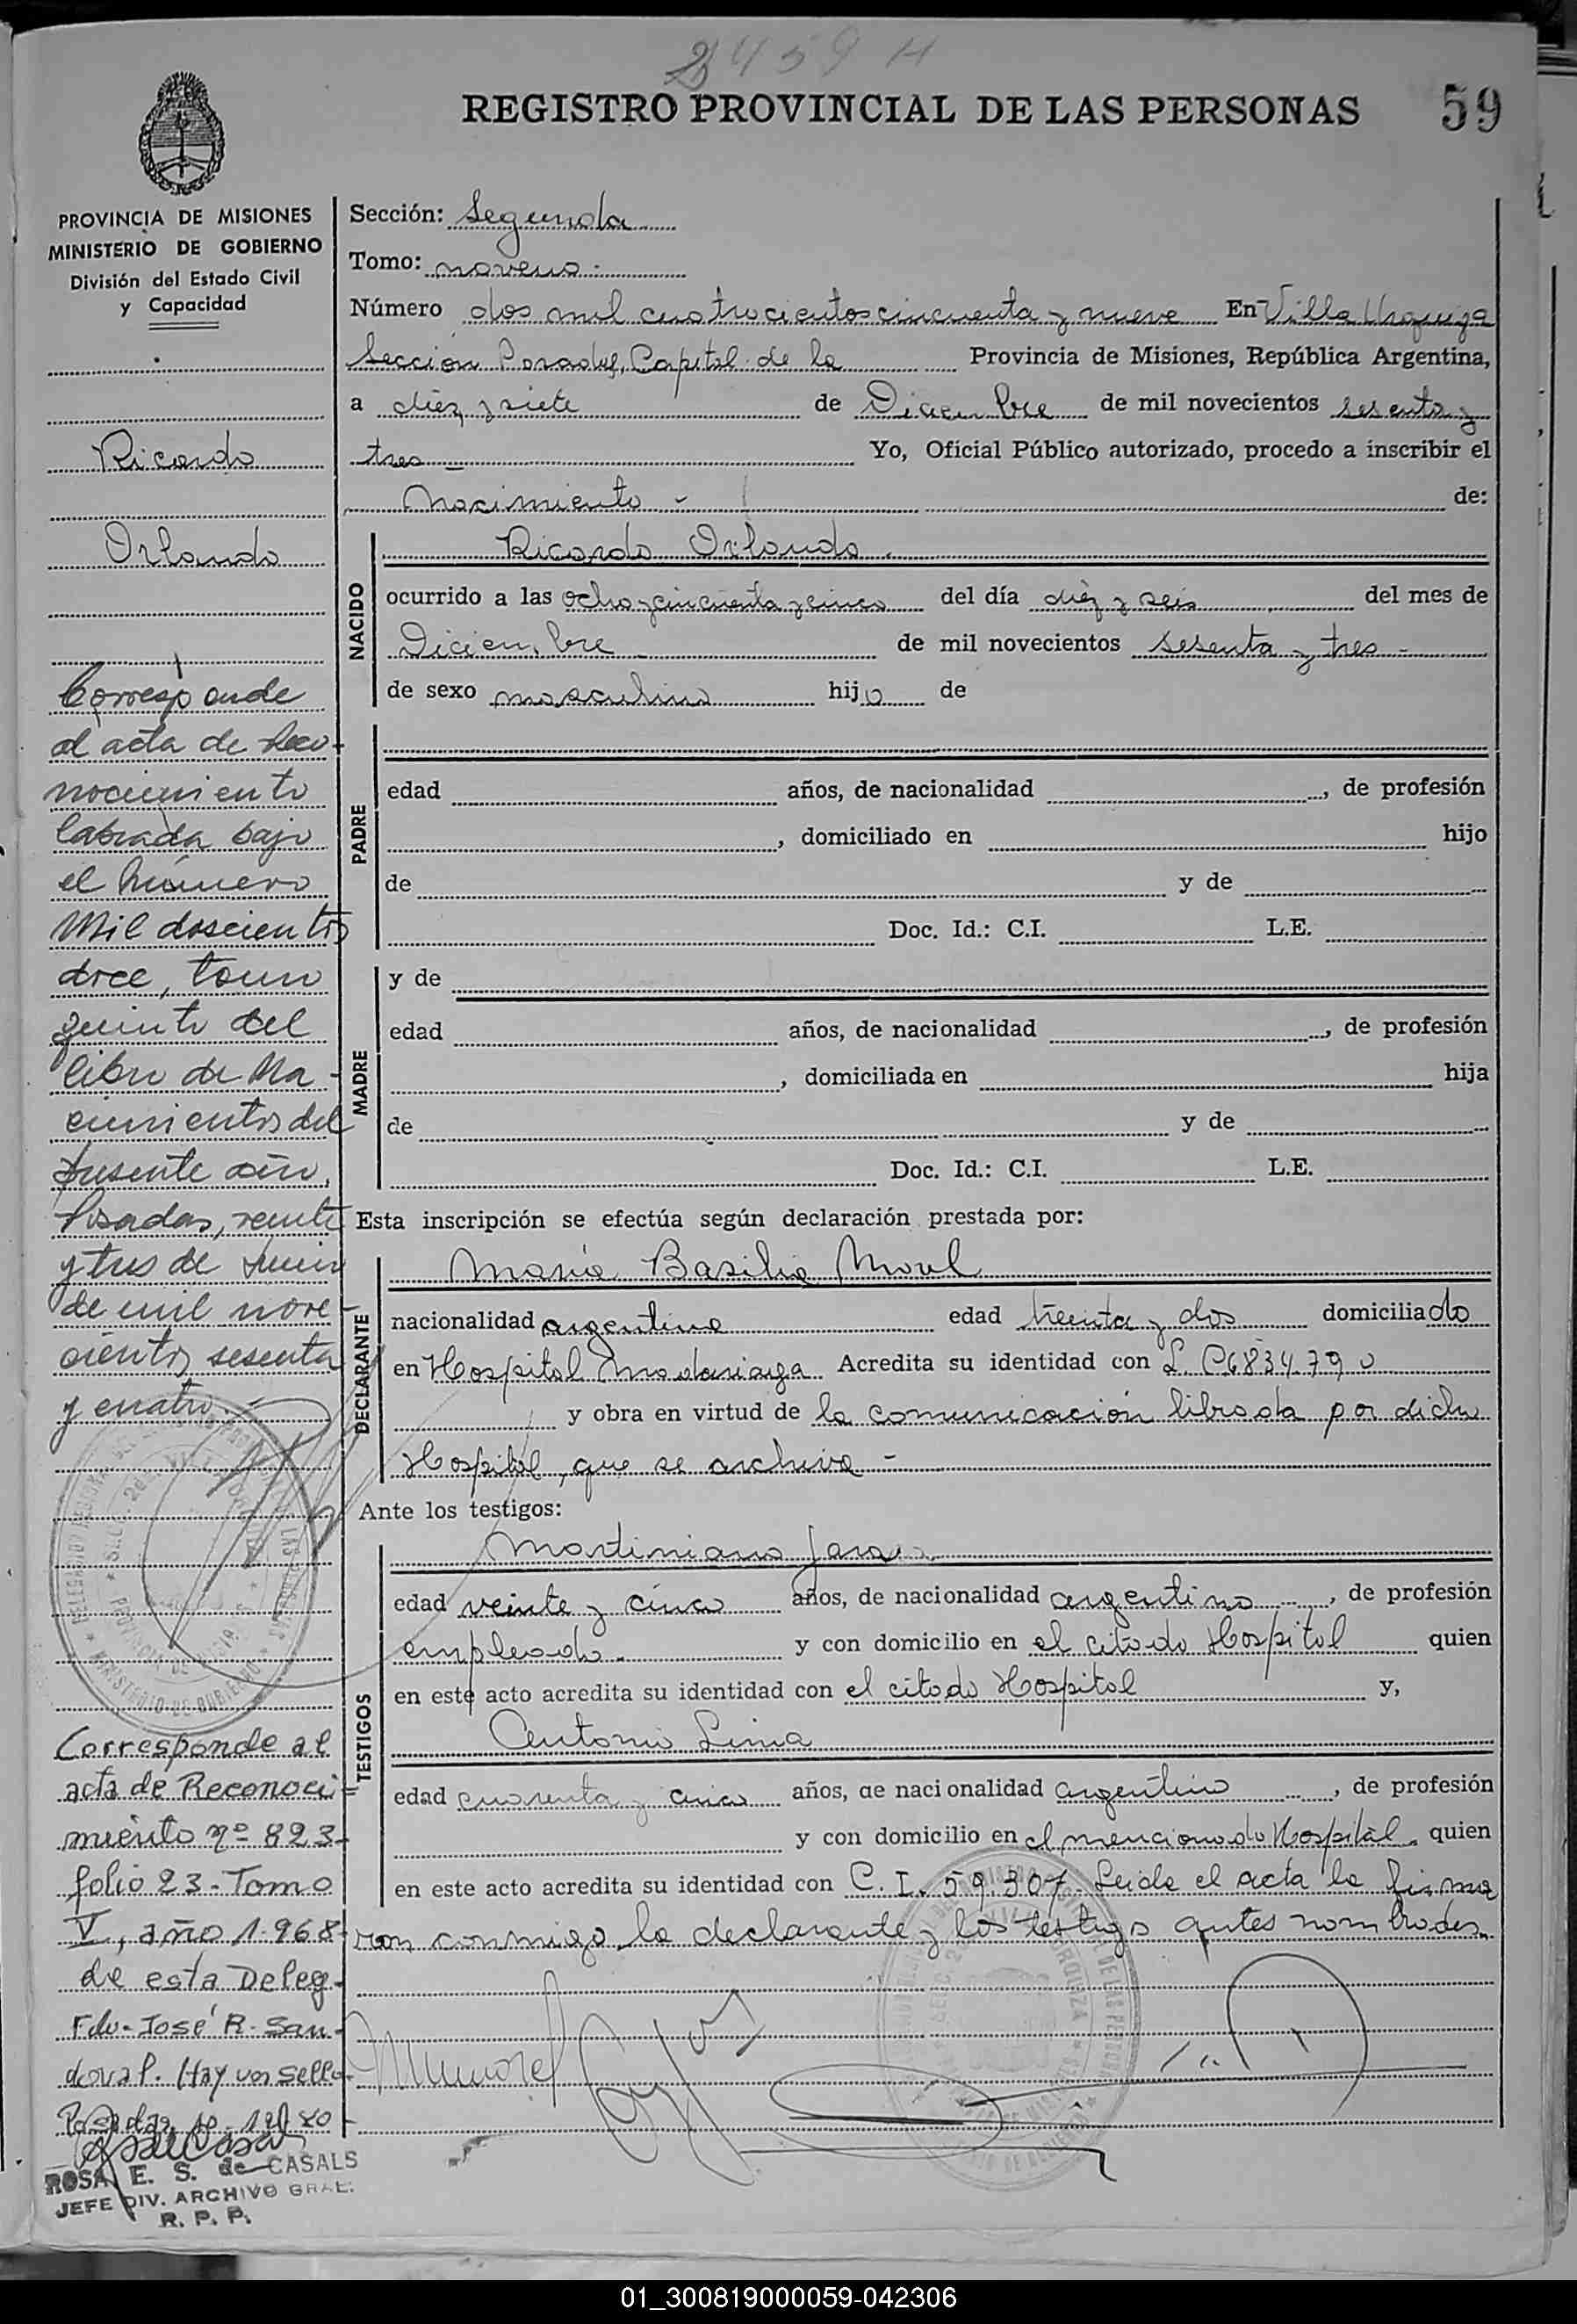 2459 H
REGISTRO PROVINCIAL DE LAS PERSONAS
59
PROVINCIA DE MISIONES
MINISTERIO DE GOBIERNO
División del Estado Civil
y Capacidad
Ricardo
Orlando
Corresponde
al acta de Reco-
nocimiento
labrada bajo
el número
Mil doscientos
doce, tomo
quinto del
libro de Na-
cimientos del
presente año.
Posadas, veinte
y tres de Junio
de mil nove-
cientos sesenta
y cuatro
Corresponde al
acta de Reconoci-
miento nº 823-
folio 23-Tomo
V, año 1.968-
de esta Deleg-
Fdo-José R. San-
doval. Hay un sello-
Posadas
ROSA E. S. de CASALS
JEFE DIV. ARCHIVO GRAL.
R. P. P.
Sección: Segunda
Tomo: noveno.
Número dos mil cuatrocientos cincuenta y nueve En Villa Urquiza
Sección Posadas, Capital de la Provincia de Misiones, República Argentina,
a diez y siete de Diciembre de mil novecientos sesenta y
tres Yo, Oficial Público autorizado, procedo a inscribir el
Nacimiento - de:
NACIDO
Ricardo Orlando.
ocurrido a las ocho y cincuenta y cinco del día diez y seis del mes de
Diciembre de mil novecientos sesenta y tres-
de sexo masculino hijo de
PADRE
edad años, de nacionalidad , de profesión
, domiciliado en hijo
de y de
Doc. Id.: C.I. L.E.
MADRE
y de
edad años, de nacionalidad , de profesión
, domiciliada en hija
de y de
Doc. Id.: C.I. L.E.
Esta inscripción se efectúa según declaración prestada por:
DECLARANTE
María Basilia Morel
nacionalidad argentina edad treinta y dos domiciliado
en Hospital Madariaga Acredita su identidad con L. C 6834790
y obra en virtud de la comunicación librada por dicho
Hospital, que se archiva -
Ante los testigos:
TESTIGOS
Martiniano Jara
edad veinte y cinco años, de nacionalidad argentino, de profesión
empleado. y con domicilio en el citado Hospital quien
en este acto acredita su identidad con el citado Hospital y,
Antonio Lima
edad cuarenta y cinco años, de nacionalidad argentino, de profesión
y con domicilio en el mencionado Hospital. quien
en este acto acredita su identidad con C. I. 59.307 Leida el acta la firma
ron conmigo la declarante y los testigos antes nombrados.
01_300819000059-042306